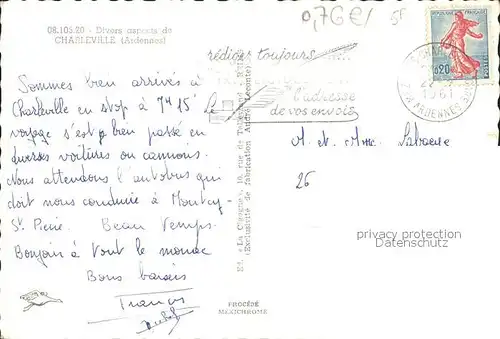 08.105.20 - Divers aspects de
CHARLEVILLE (Ardennes)
0,76 €/
Sommes bien arrivés à
Charleville en stop à 7H 15' Le
voyage s'est bien passé en
diverses voitures ou camions.
Nous attendons l'autobus qui
doit nous conduire à Montcy-
St Pierre. Beau Temps.
Bonjour à tout le monde
Bons baisers
Francis
rédigez toujours
l'adresse
de vos envois
FRANÇAISE
0,20
POSTES
1961
ARDENNES
M. et Mme
26
privacy protection
Datenschutz
Ed. "La Cigogne",
(Exclusivité de fabrication André Leconte)
PROCÉDÉ
MEXICHROME